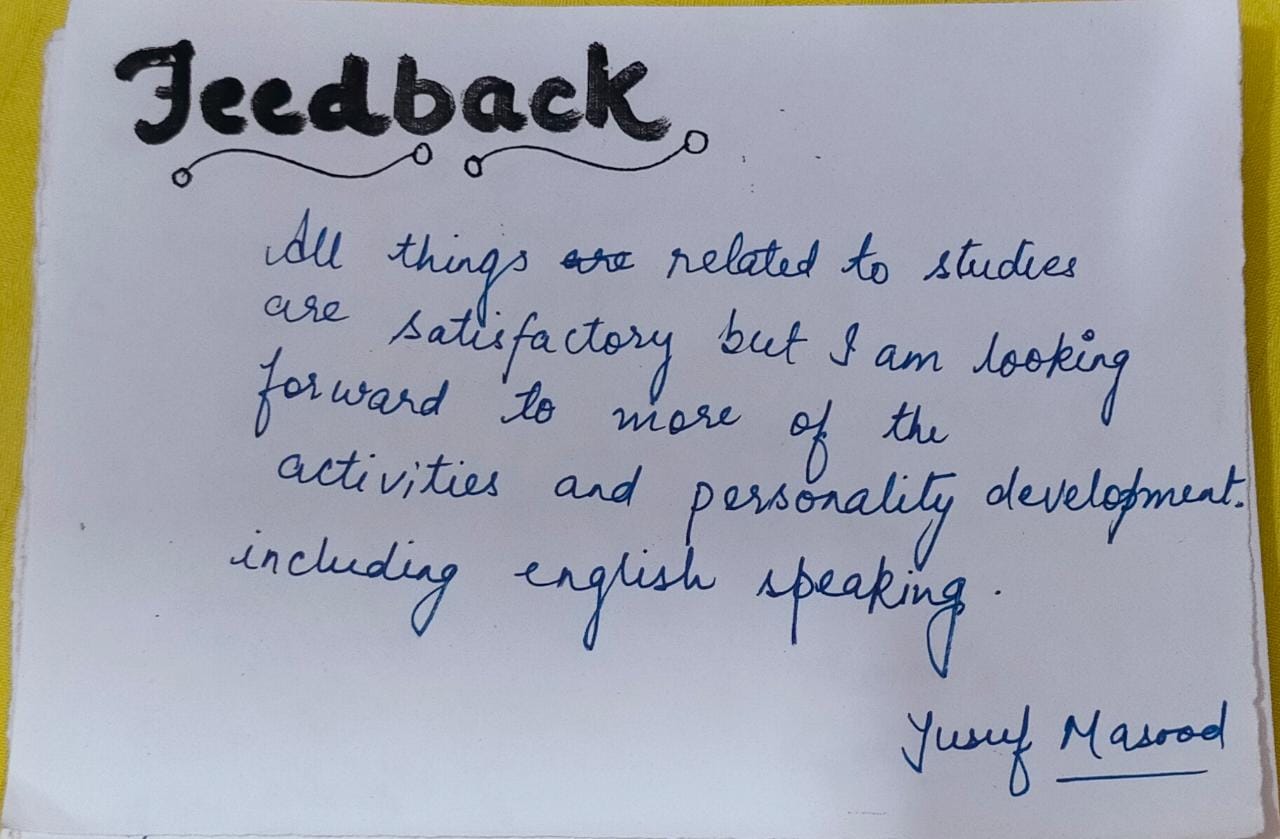 Feedback
All things are related to studies
are satisfactory but I am looking
forward to more of the
activities and personality development.
including english speaking.
Yusuf Masood